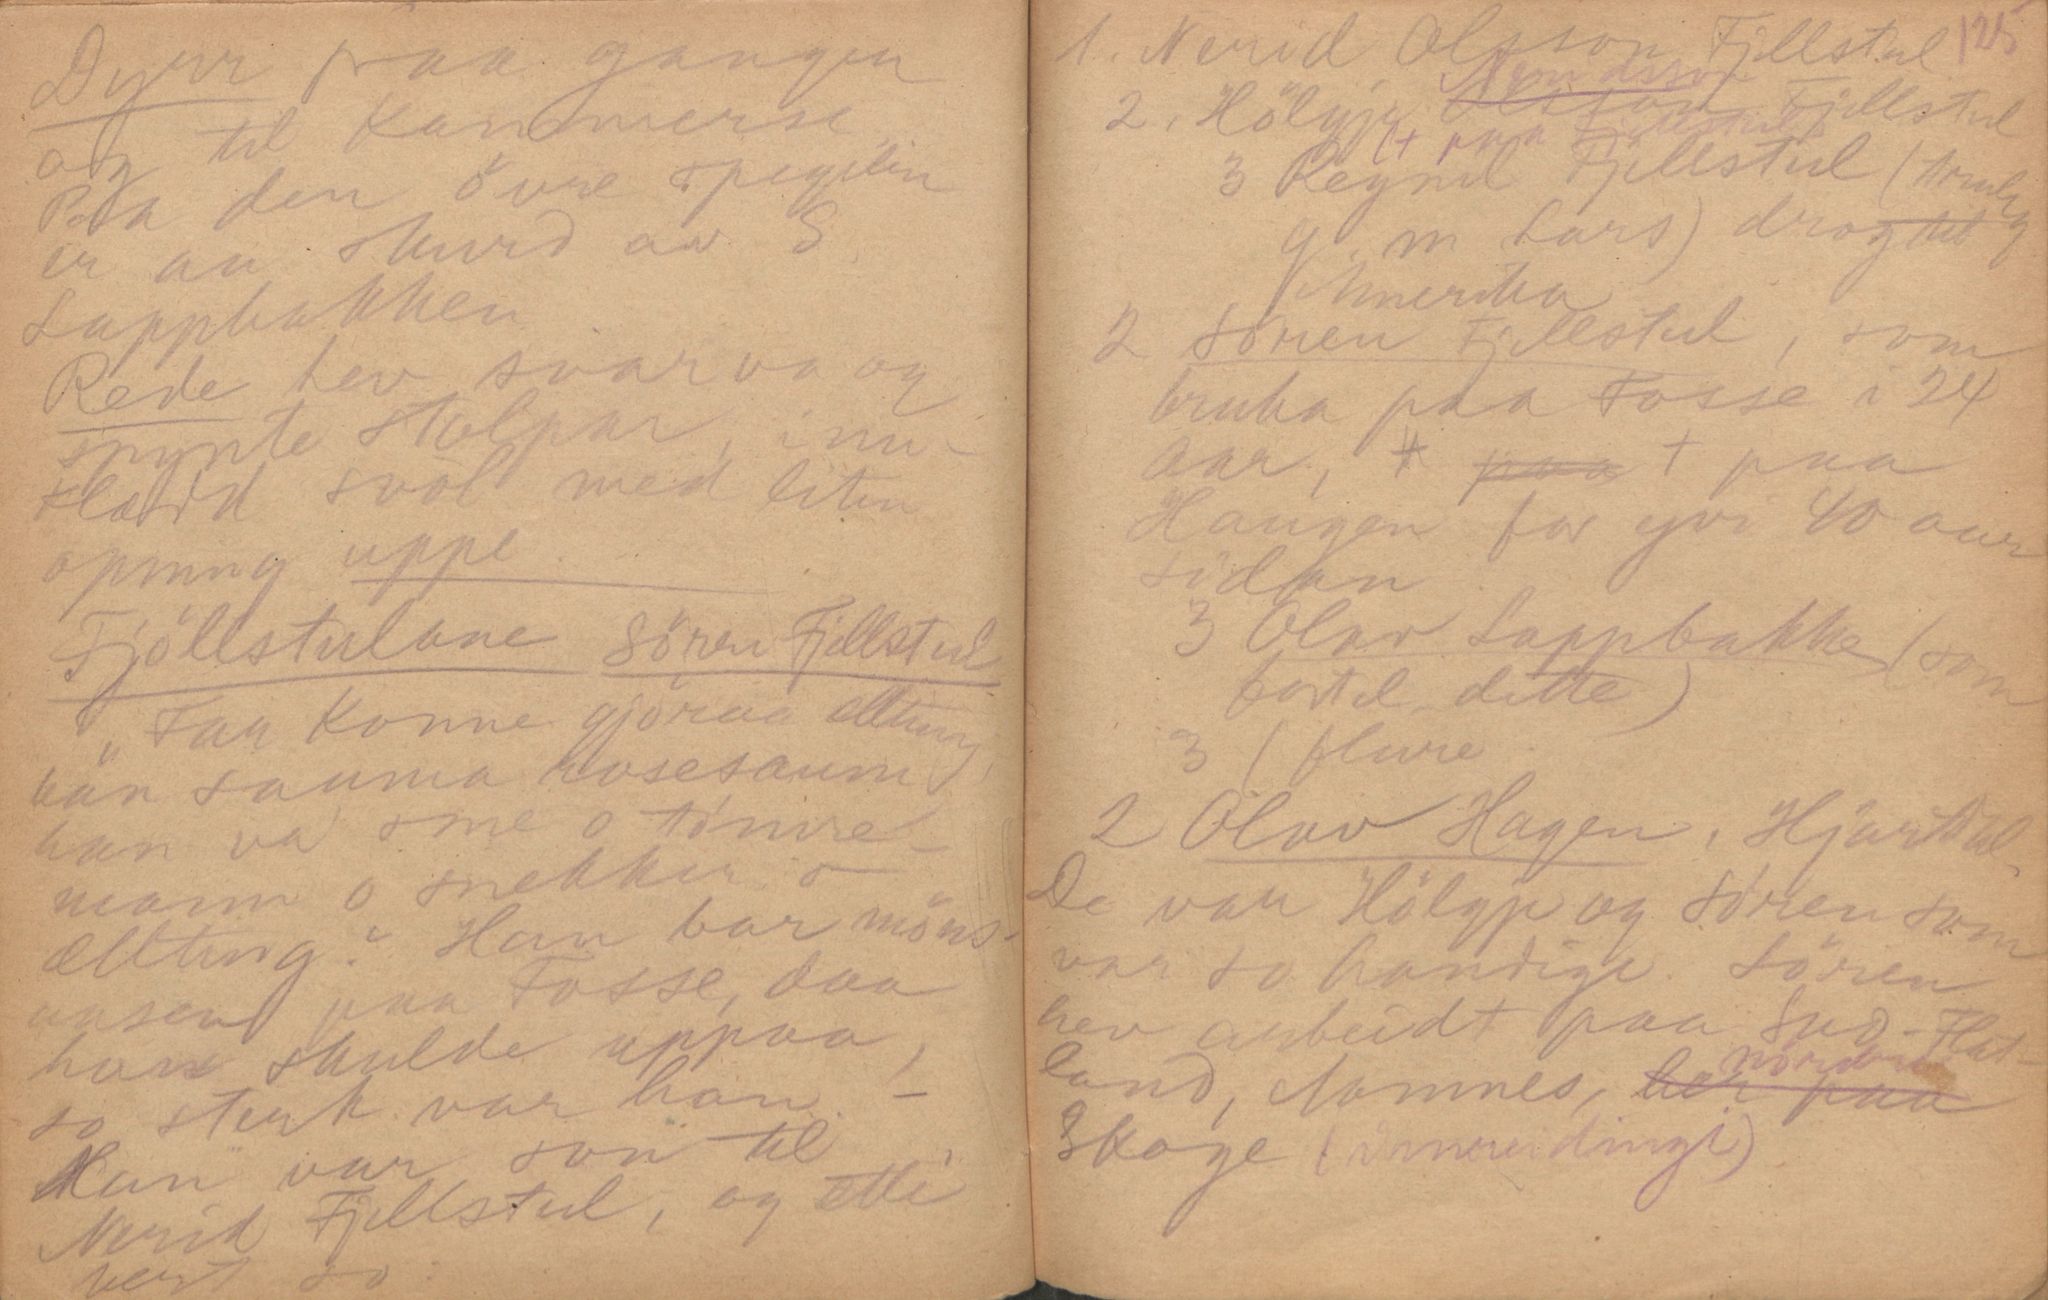 Dyrr paa gangen
og til kammerse
Paa den övre spegilin
er au skurd av S.
Lappbakken
Rede hev svarva og
snypte stolpar, innu-
klædd svol med liten
opning uppe.
Fjöllstulane Sören Fjellstul
"Faa konne gjöraa allting,
han sauma rosesaum
han va sme o tömre-
mann o snekker o
allting." Han bar möns-
aasen paa Fosse, daa
han skulde uppaa,
so sterk var han. –
Han var son til
Nerid Fjellstul, og etti
vert so:
125
1. Nerid Olsson Fjellstul
Neridsson
2. Hölgje Olsson Fjellstul
(+ paa Fjellstul)
3 Regnil Fjellstul (
g. m Lars) drog til
Amerika
2 Sören Fjellstul, som
bruka paa Fosse i 24
aar, + paa + paa
Haugen for yvi 40 aar
sidan
3 Olav Lappbakke (som
fortel dette)
3 (fleire
2 Olav Hagen, Hjartdal.
De var Hölgje og Sören som
var so handige. Sören
hev arbeidt paa Sud-Flat-
land, Nomnes, her paa
nordre
Skoge (innreidingi)